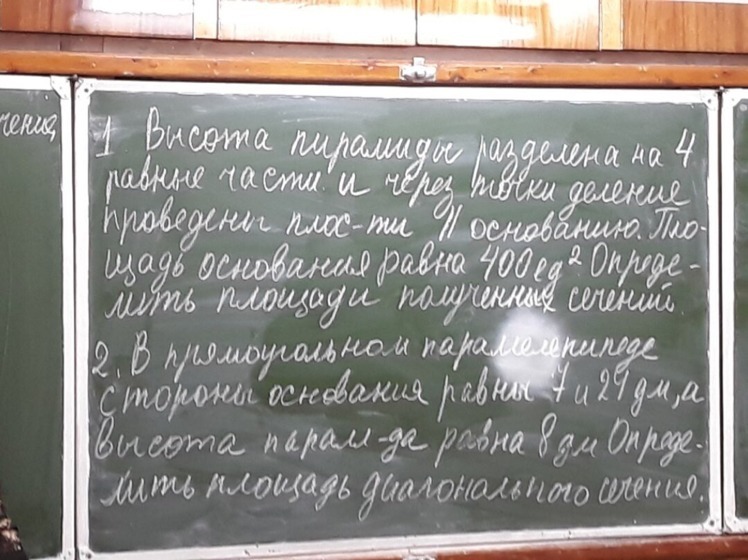 чения
1 Высота пирамиды разделена на 4
равные части и через точки деления
проведены плос-ти || основанию. Пло-
щадь основания равна 400 ед² Опреде-
лить площади полученных сечений.
2. В прямоугольном параллелепипеде
стороны основания равны 7 и 24 дм, а
высота парал-да равна 8 дм Опреде-
лить площадь диагонального сечения.